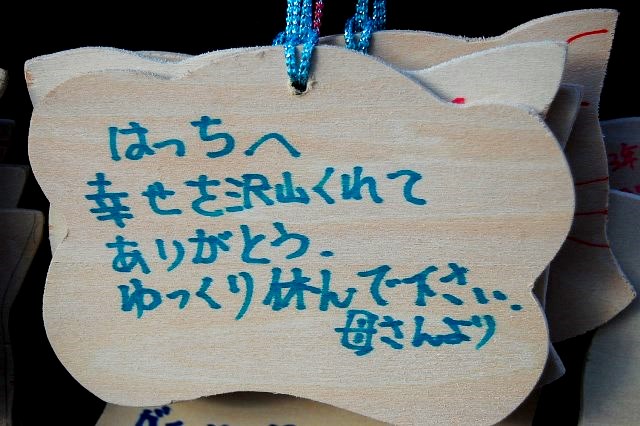 はっちへ
幸せを沢山くれて
ありがとう.
ゆっくり休んで下さい.
母さんより